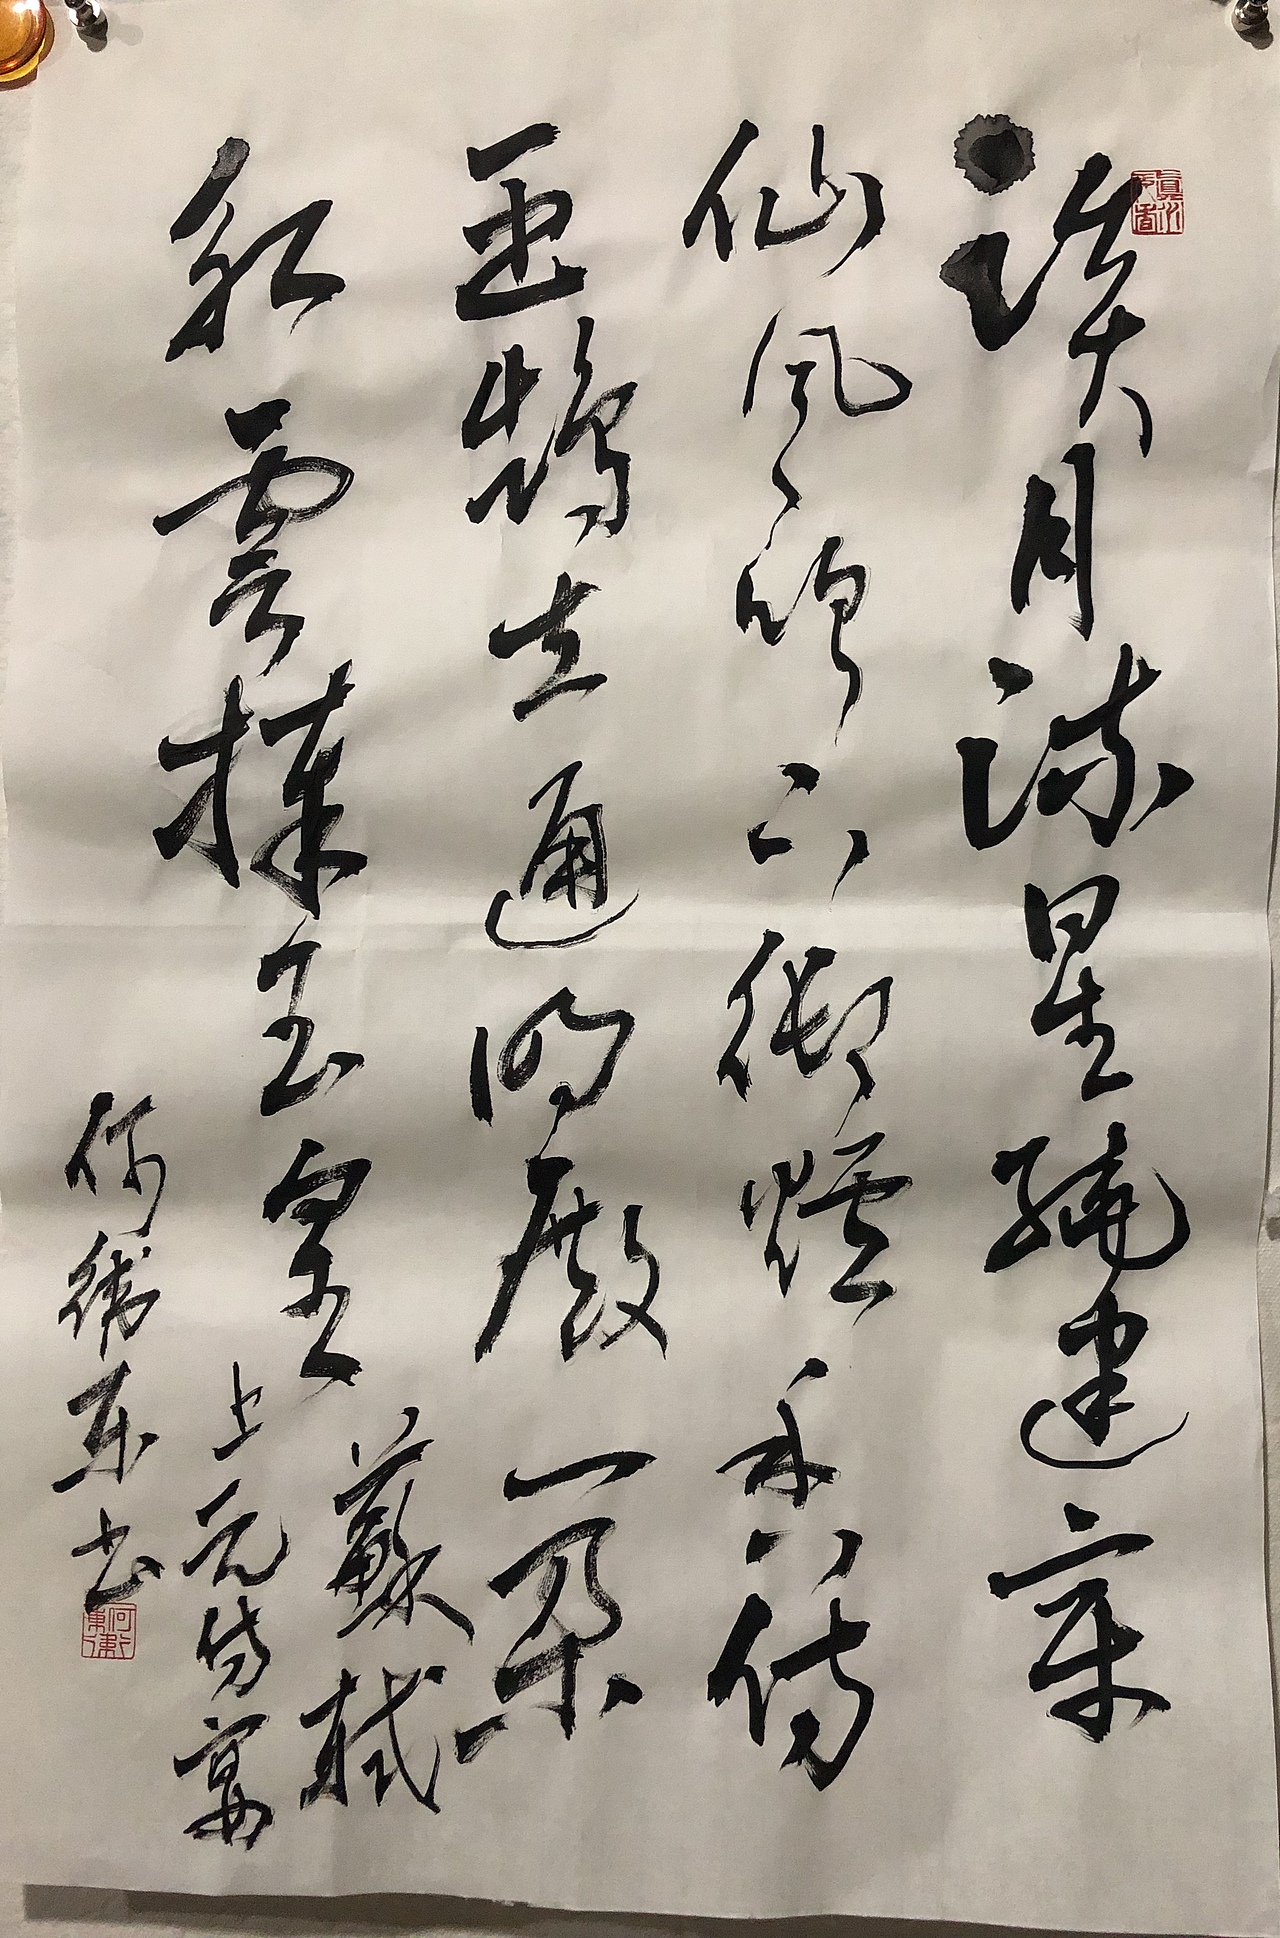 淡月疏星繞建章
仙風吹下御爐香侍
臣鵠立通明殿一朵
紅雲捧玉皇
蘇軾
上元侍宴
何衛東書